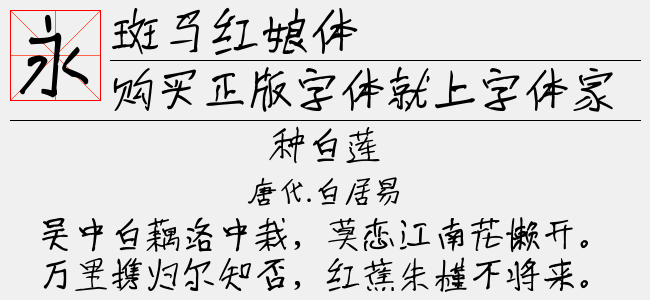 永
斑马红娘体
购买正版字体就上字体家
种白莲
唐代.白居易
吴中白藕洛中栽，莫恋江南花懒开。
万里携归尔知否，红蕉朱槿不将来。